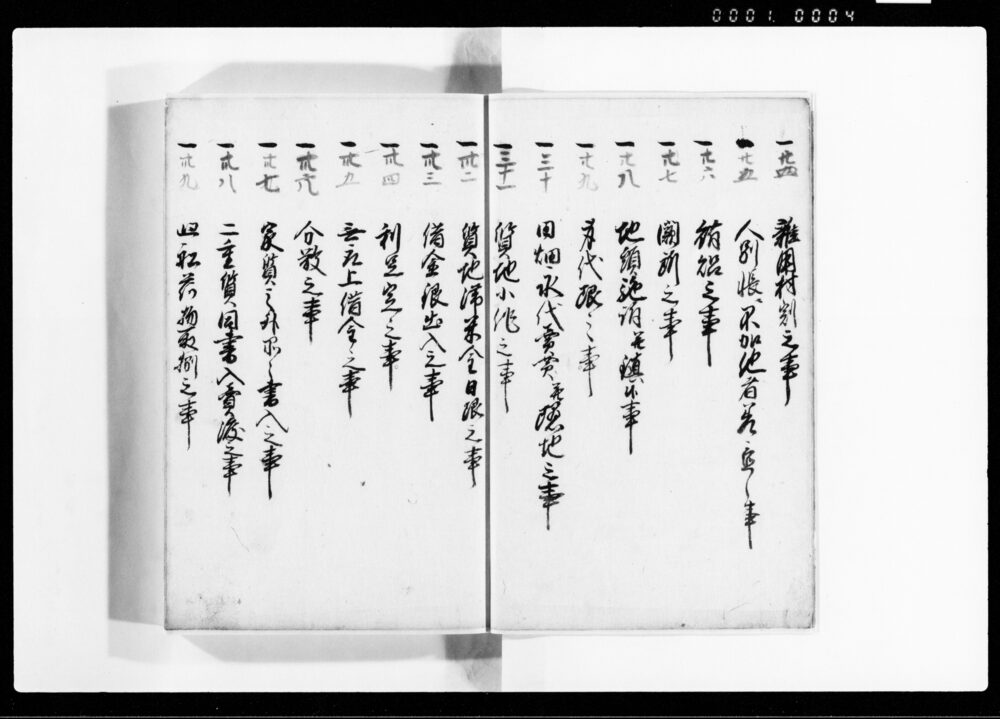 0001. 0004
一廿四 雑用村割之事
一廿五 人別帳ニ不加他者差置候事
一廿六 賄賂之事
一廿七 闕所之事
一廿八 地頭強訴并鎮候事
一廿九 身代限之事
一三十 田畑永代賣買并隠地之事
一三十一 質地小作之事
一卅二 質地滞米金日限之事
一卅三 借金銀出入之事
一卅四 利足定之事
一卅五 無取上借金之事
一卅六 分散之事
一卅七 家質之外書入之事
一卅八 二重質同書入賣渡之事
一卅九 廻船荷物取捌之事